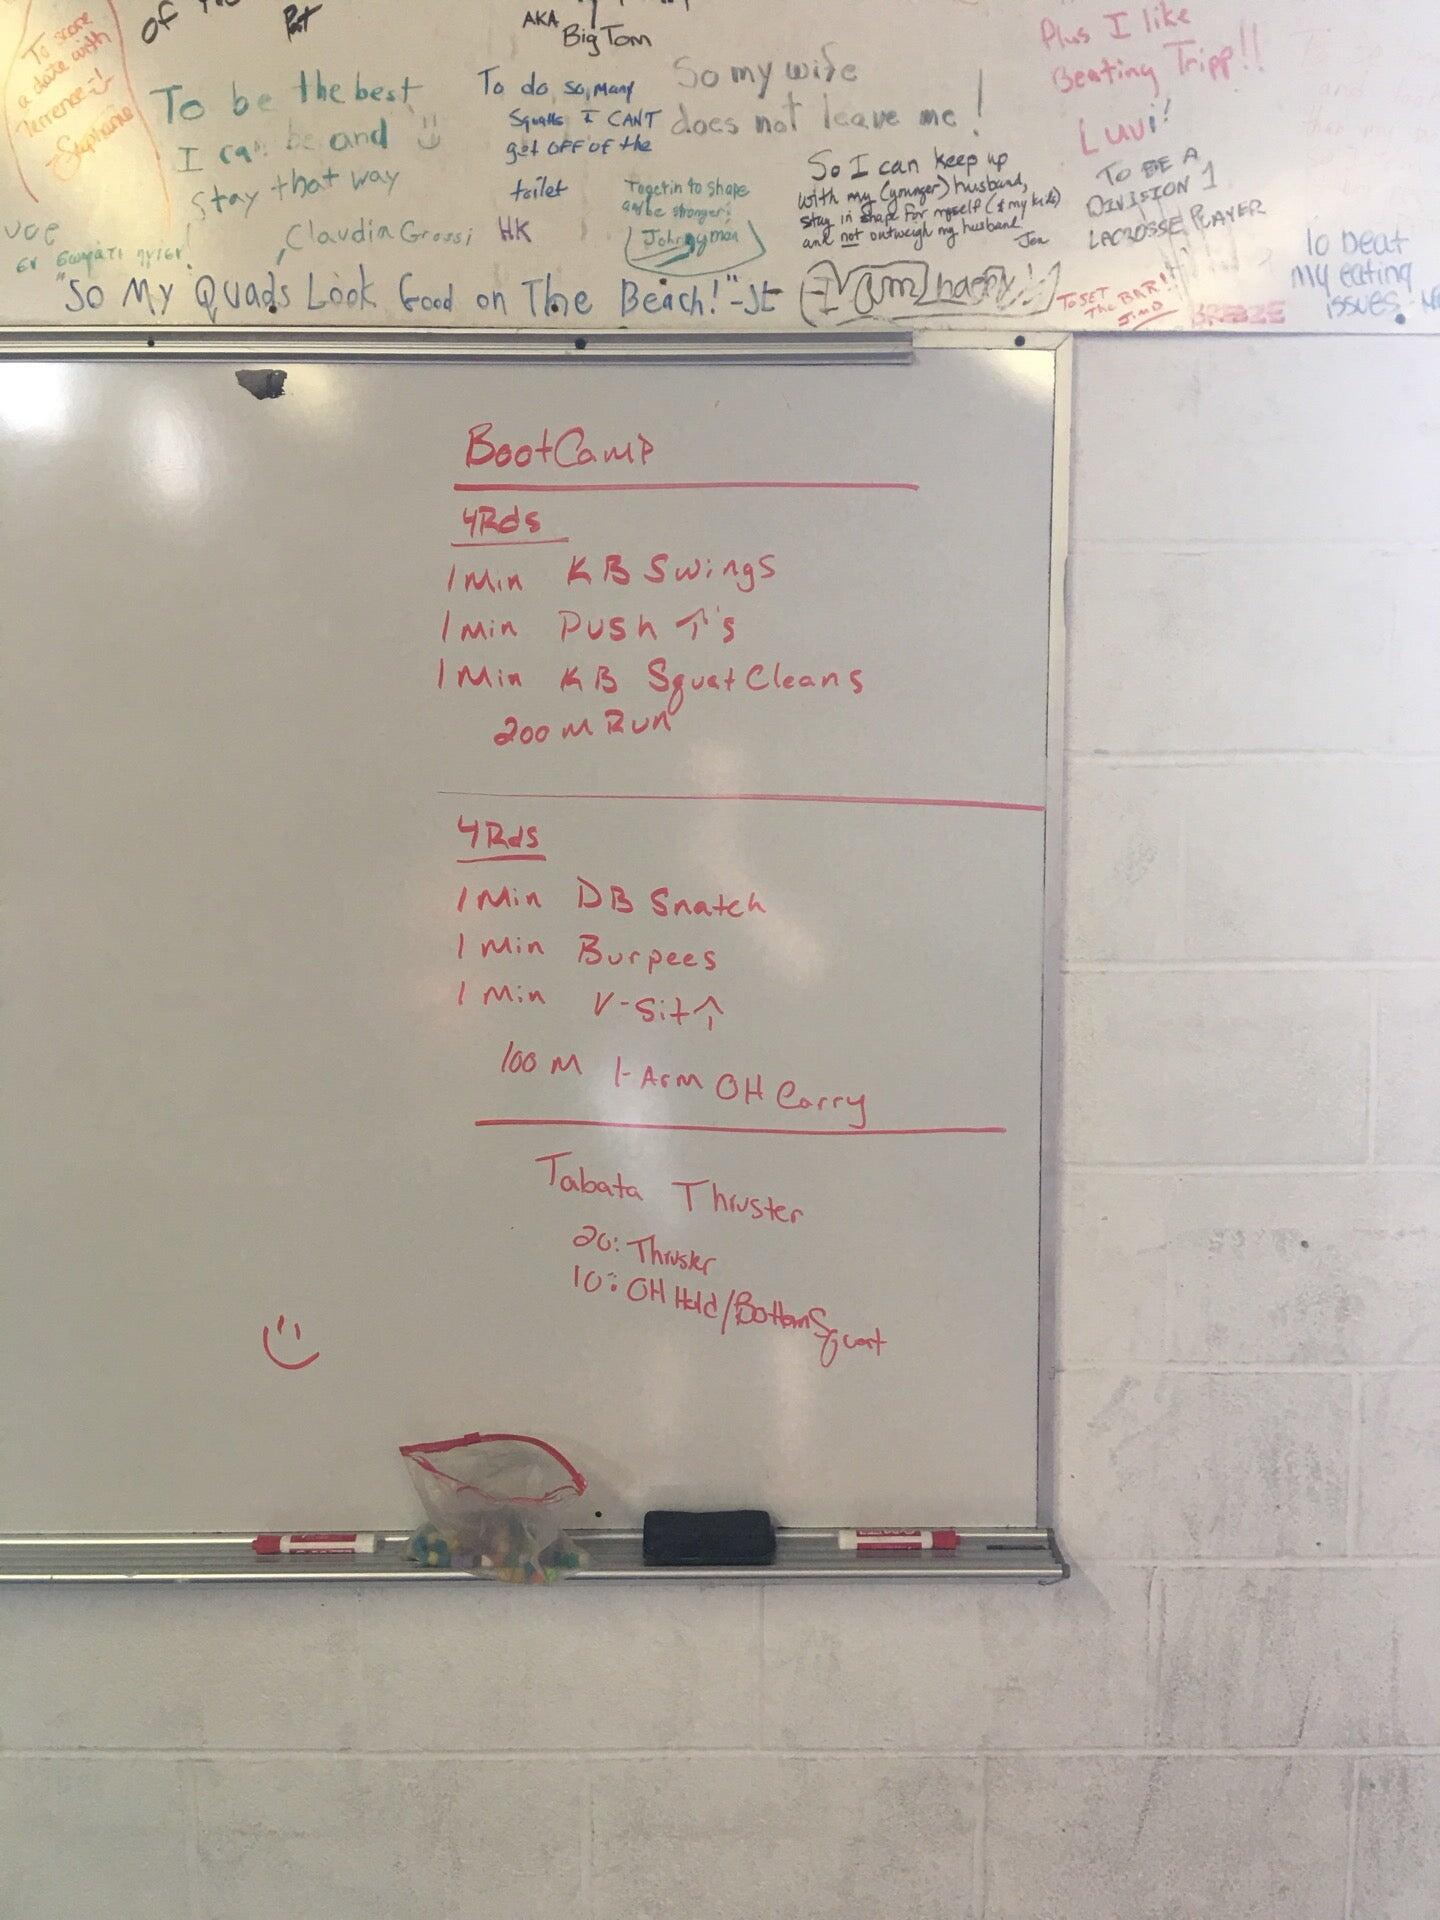 To score
a date with
Terrence
Stephanie
of
AKA
Big Tom
To be the best
I can be and
Stay that way
Claudia Grossi
To do so many
Squats I CANT
get OFF OF the
toilet
HK
So my wife
does not leave me!
To get in to shape
and be stronger!
Plus I like
Beating Tripp!!
Luvi!
So I can keep up
with my (younger) husband,
stay in shape for myself (& my kids)
and not outweigh my husband!
Jen
TO BE A
DIVISION 1
LACROSSE PLAYER
To beat
my eating
issues
"So My Quads Look Good on The Beach!" -JE
I am happy!
TO SET
The BAR!!
BREEZE
BootCamp
4Rds
1 Min KB Swings
1 Min Push ↑'s
1 Min KB Squat Cleans
200 M Run
4 Rds
1 Min DB Snatch
1 Min Burpees
1 Min V-Sit↑
100 M 1-Arm OH Carry
Tabata Thruster
20: Thruster
10: OH Hold/Bottom Squat